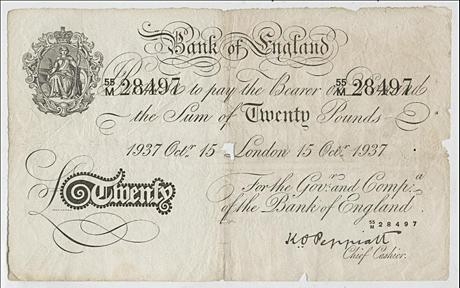 Bank of England
55/M 28497 55/M 28497
to pay the Bearer on
the Sum of Twenty Pounds
1937 Octr. 15 London 15 Octr. 1937
£Twenty
For the Govr. and Compa.
of the Bank of England.
55/M 28497
K. O. Peppiatt
Chief Cashier.